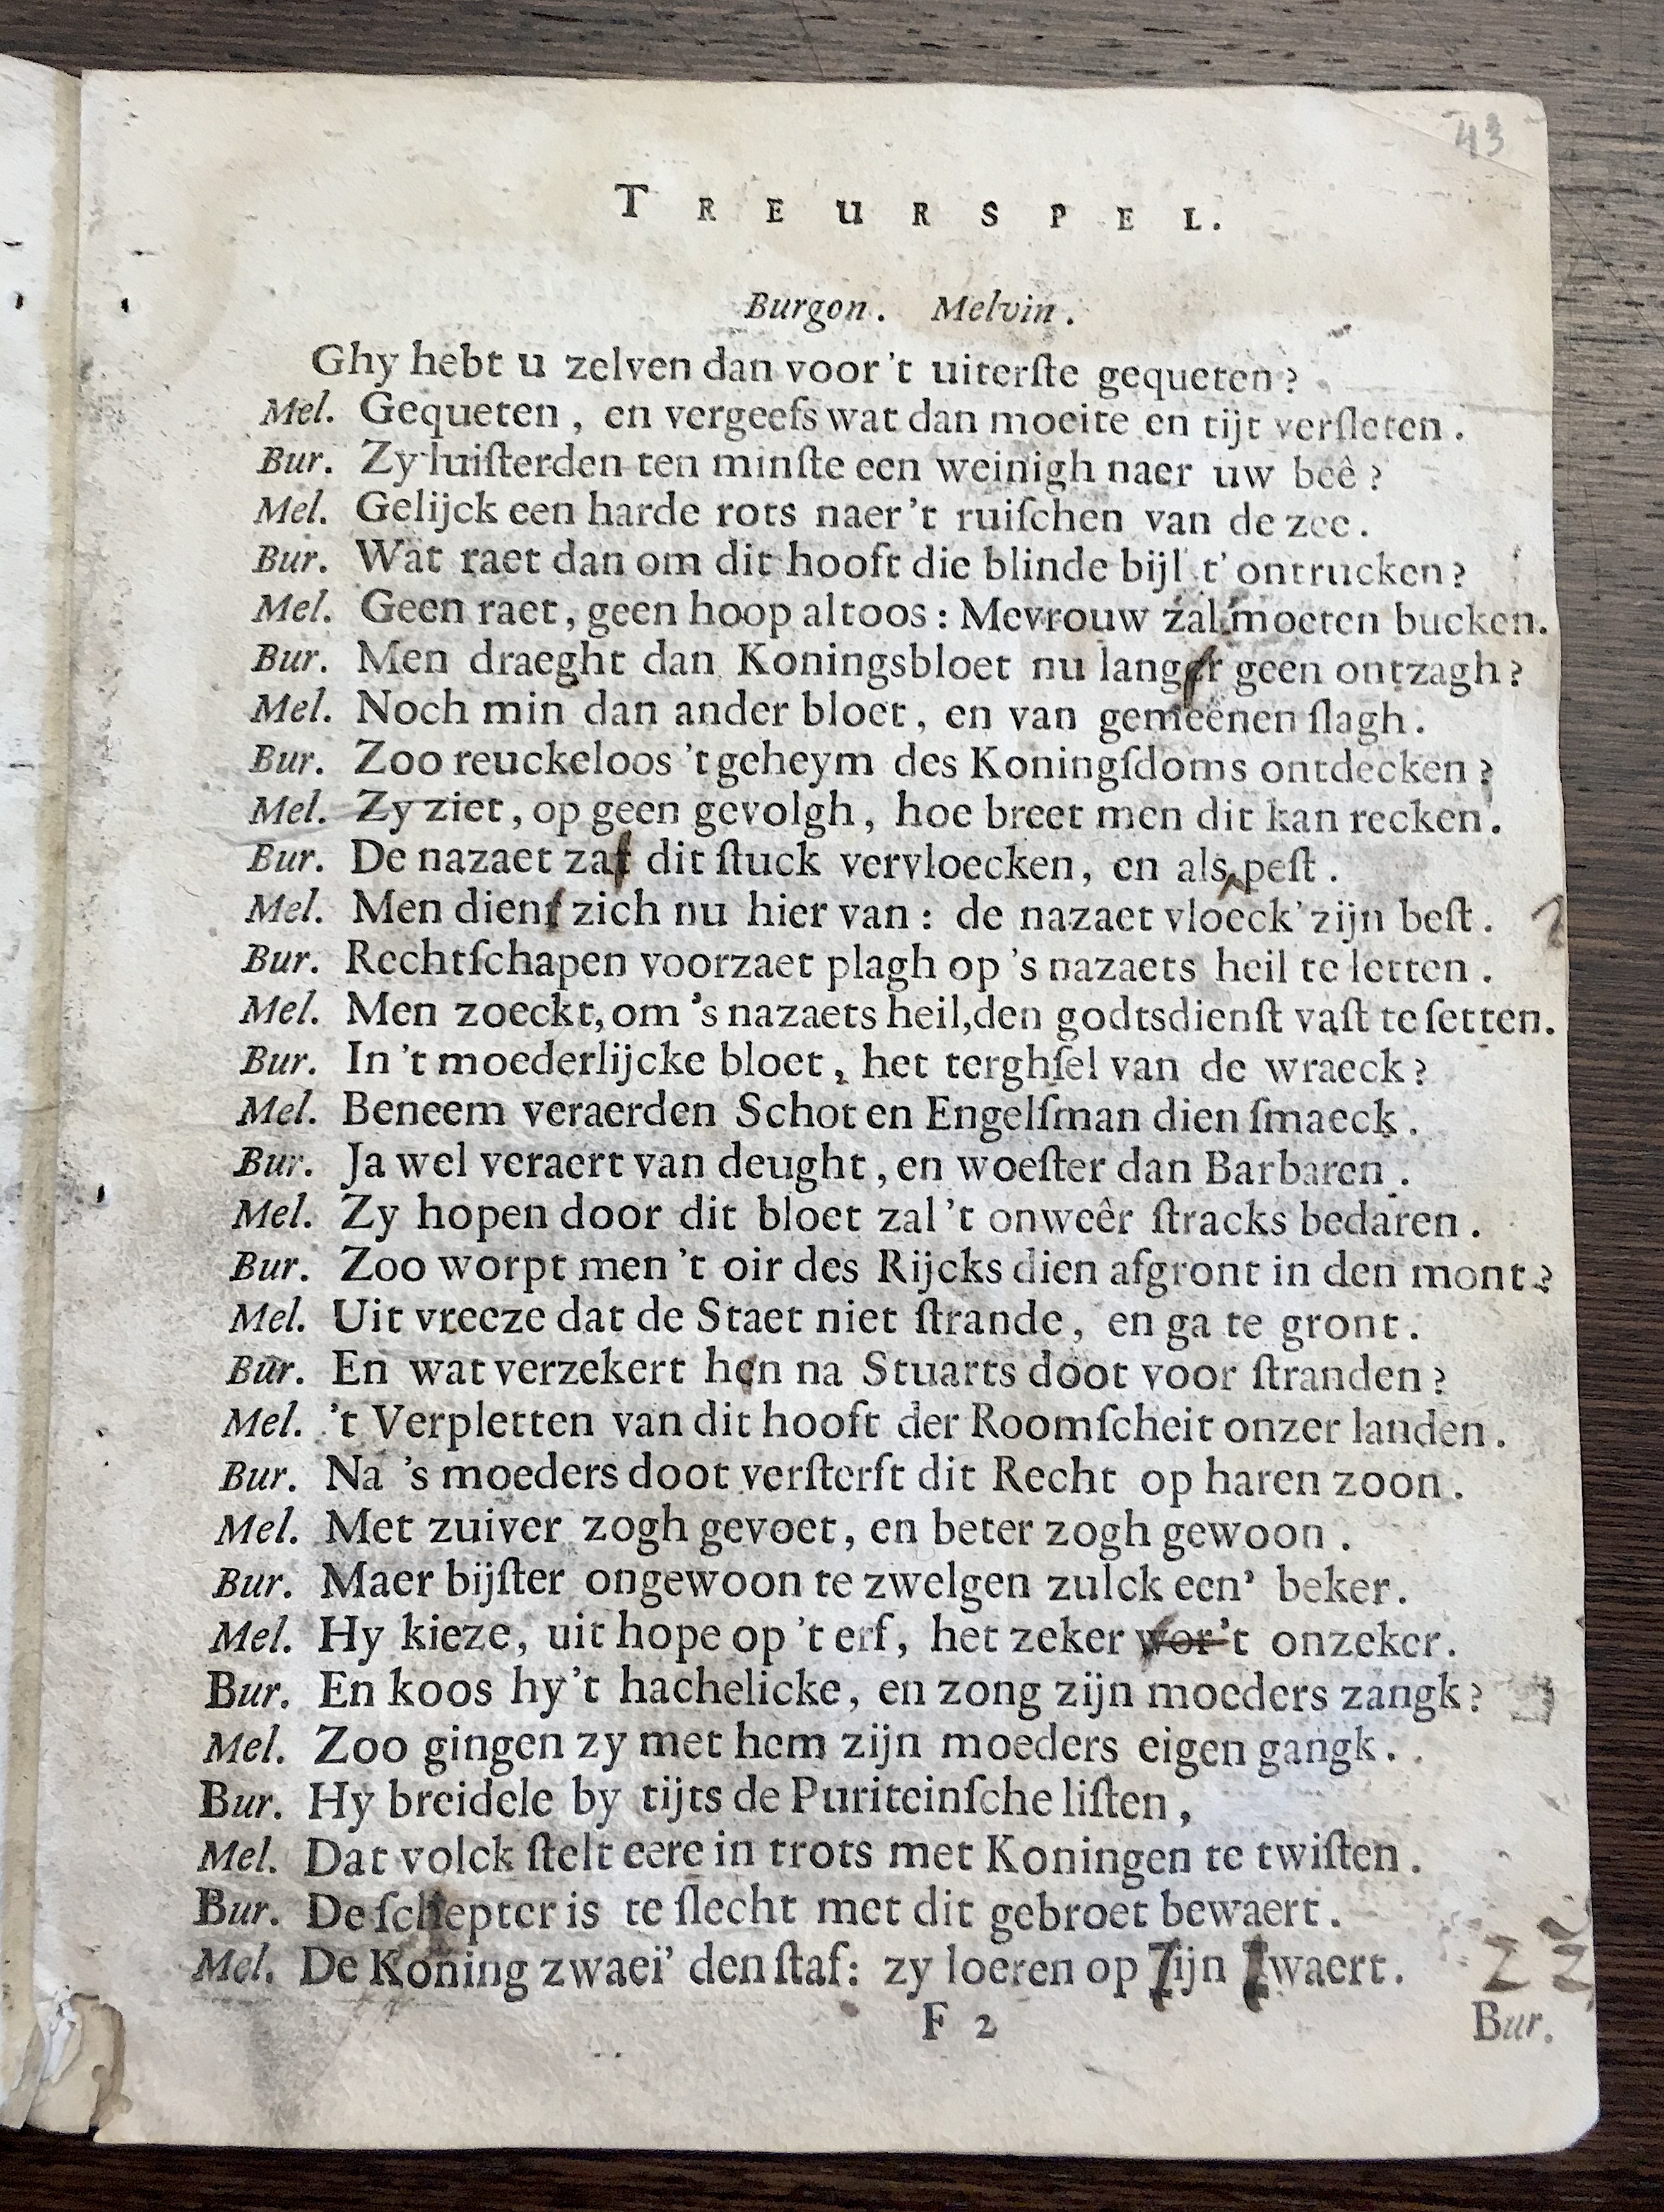 43
TREURSPEL.
Burgon. Melvin.
Ghy hebt u zelven dan voor 't uiterſte gequeten?
Mel. Gequeten, en vergeefs wat dan moeite en tijt verſleten.
Bur. Zy luiſterden ten minſte een weinigh naer uw beê?
Mel. Gelijck een harde rots naer 't ruiſchen van de zee.
Bur. Wat raet dan om dit hooft die blinde bijl t' ontrucken?
Mel. Geen raet, geen hoop altoos: Mevrouw zal moeten bucken.
Bur. Men draeght dan Koningsbloet nu langer geen ontzagh?
Mel. Noch min dan ander bloet, en van gemeenen ſlagh.
Bur. Zoo reuckeloos 't geheym des Koningſdoms ontdecken?
Mel. Zy ziet, op geen gevolgh, hoe breet men dit kan recken.
Bur. De nazaet zal dit ſtuck vervloecken, en als peſt.
Mel. Men dient zich nu hier van: de nazaet vloeck' zijn beſt.
Bur. Rechtſchapen voorzaet plagh op 's nazaets heil te letten.
Mel. Men zoeckt, om 's nazaets heil, den godtsdienſt vaſt te ſetten.
Bur. In 't moederlijcke bloet, het terghſel van de wraeck?
Mel. Beneem veraerden Schot en Engelſman dien ſmaeck.
Bur. Ja wel veraert van deught, en woeſter dan Barbaren.
Mel. Zy hopen door dit bloet zal 't onweêr ſtracks bedaren.
Bur. Zoo worpt men 't oir des Rijcks dien afgront in den mont?
Mel. Uit vreeze dat de Staet niet ſtrande, en ga te gront.
Bur. En wat verzekert hen na Stuarts doot voor ſtranden?
Mel. 't Verpletten van dit hooft der Roomſcheit onzer landen.
Bur. Na 's moeders doot verſterft dit Recht op haren zoon.
Mel. Met zuiver zogh gevoet, en beter zogh gewoon.
Bur. Maer bijſter ongewoon te zwelgen zulck een' beker.
Mel. Hy kieze, uit hope op 't erf, het zeker vor 't onzeker.
Bur. En koos hy 't hachelicke, en zong zijn moeders zangk?
Mel. Zoo gingen zy met hem zijn moeders eigen gangk.
Bur. Hy breidele by tijts de Puriteinſche liſten,
Mel. Dat volck ſtelt eere in trots met Koningen te twiſten.
Bur. De ſchepter is te ſlecht met dit gebroet bewaert.
Mel. De Koning zwaei' den ſtaf: zy loeren op Zijn Zwaert. Z Z
F 2
Bur.